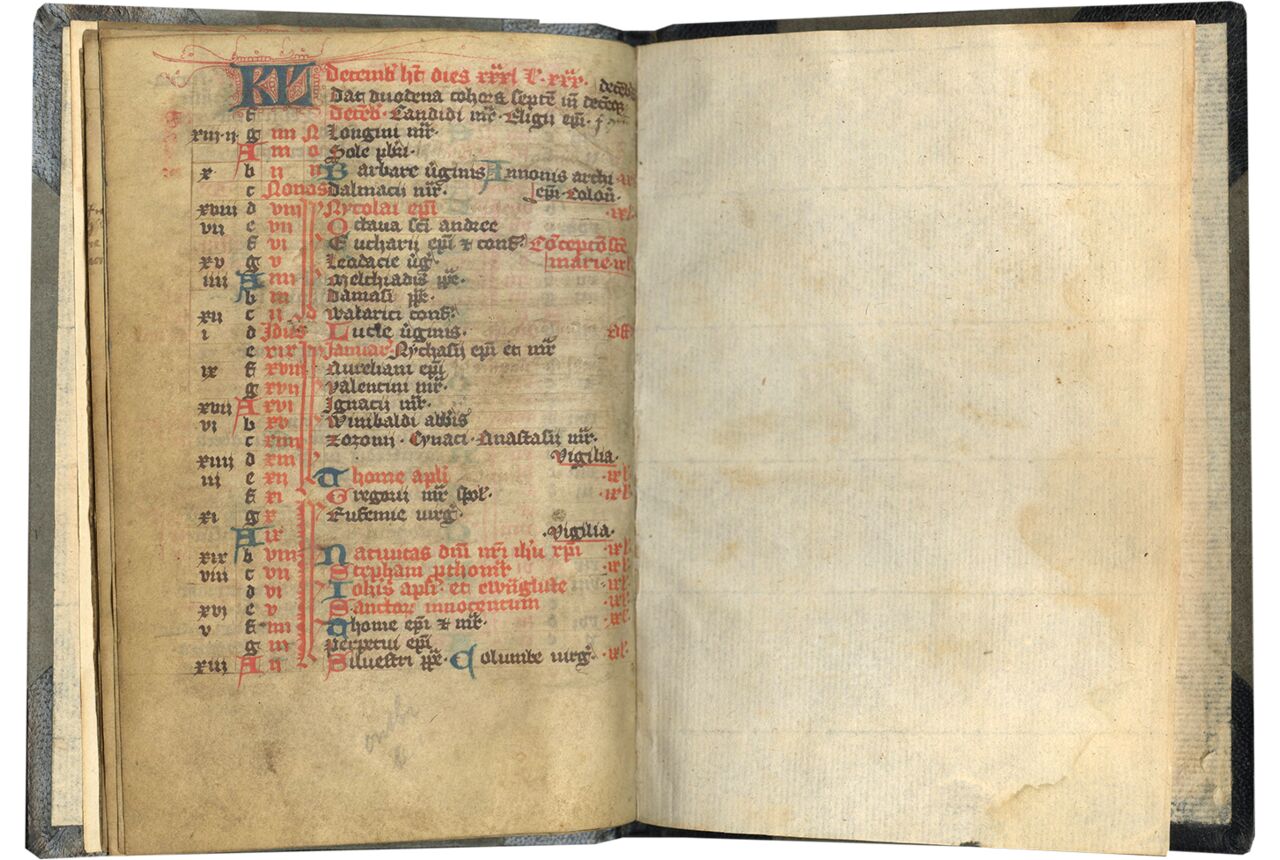 KL Decemb' ht dies xxxi l' xxx.
Dat duodena cohors septē in decēq;
decēb
f Decēb. Candidi mr̄. Eligii epī.
xiii ii g iiii N Longini mr̄.
A iii o Sole pbri.
x b ii n Barbare ūginis Annonis archi
c Nonas dalmacii mr̄. epī. Colon̄. ix l'
xviii d viii Nycolai epī ix l'
vii e vii Octaua sci andree
f vi Eucharii epī ⁊ conf. Cōceptō scē
xv g v Leodacie ūg. marie ix l'
iiii A iiii Melchiadis pp̄e.
b iii Damasi pp̄.
xii c ii d walarici conf.
i d Idus Lucie ūginis.
e xix Januar. Nychasii epī et mr̄
ix f xviii Aureliani epī
g xvii valentini mr̄.
xvii A xvi Ignacii mr̄.
vi b xv winibaldi abbis
c xiiii Zozomi. Cyriaci. Anastasii mr̄.
xiiii d xiii Vigilia.
iii e xii Thome apli ix l'
f xi Gregorii mr̄ spol'. ix l'
xi g x Eufemie uirg.
A ix .Vigilia.
xix b viii Natiuitas dn̄i nr̄i ihū xp̄i ix l'
viii c vii Stephani pthom̄r ix l'
d vi Iohis apli. et ewāgliste ix l'
xvi e v Sanctor innocentum ix l'
v f iiii Thome epī ⁊ mr̄. ix l'
g iii perpetui epī
xiii A ii Siluestri pp̄e. Columbe uirg. ix l'